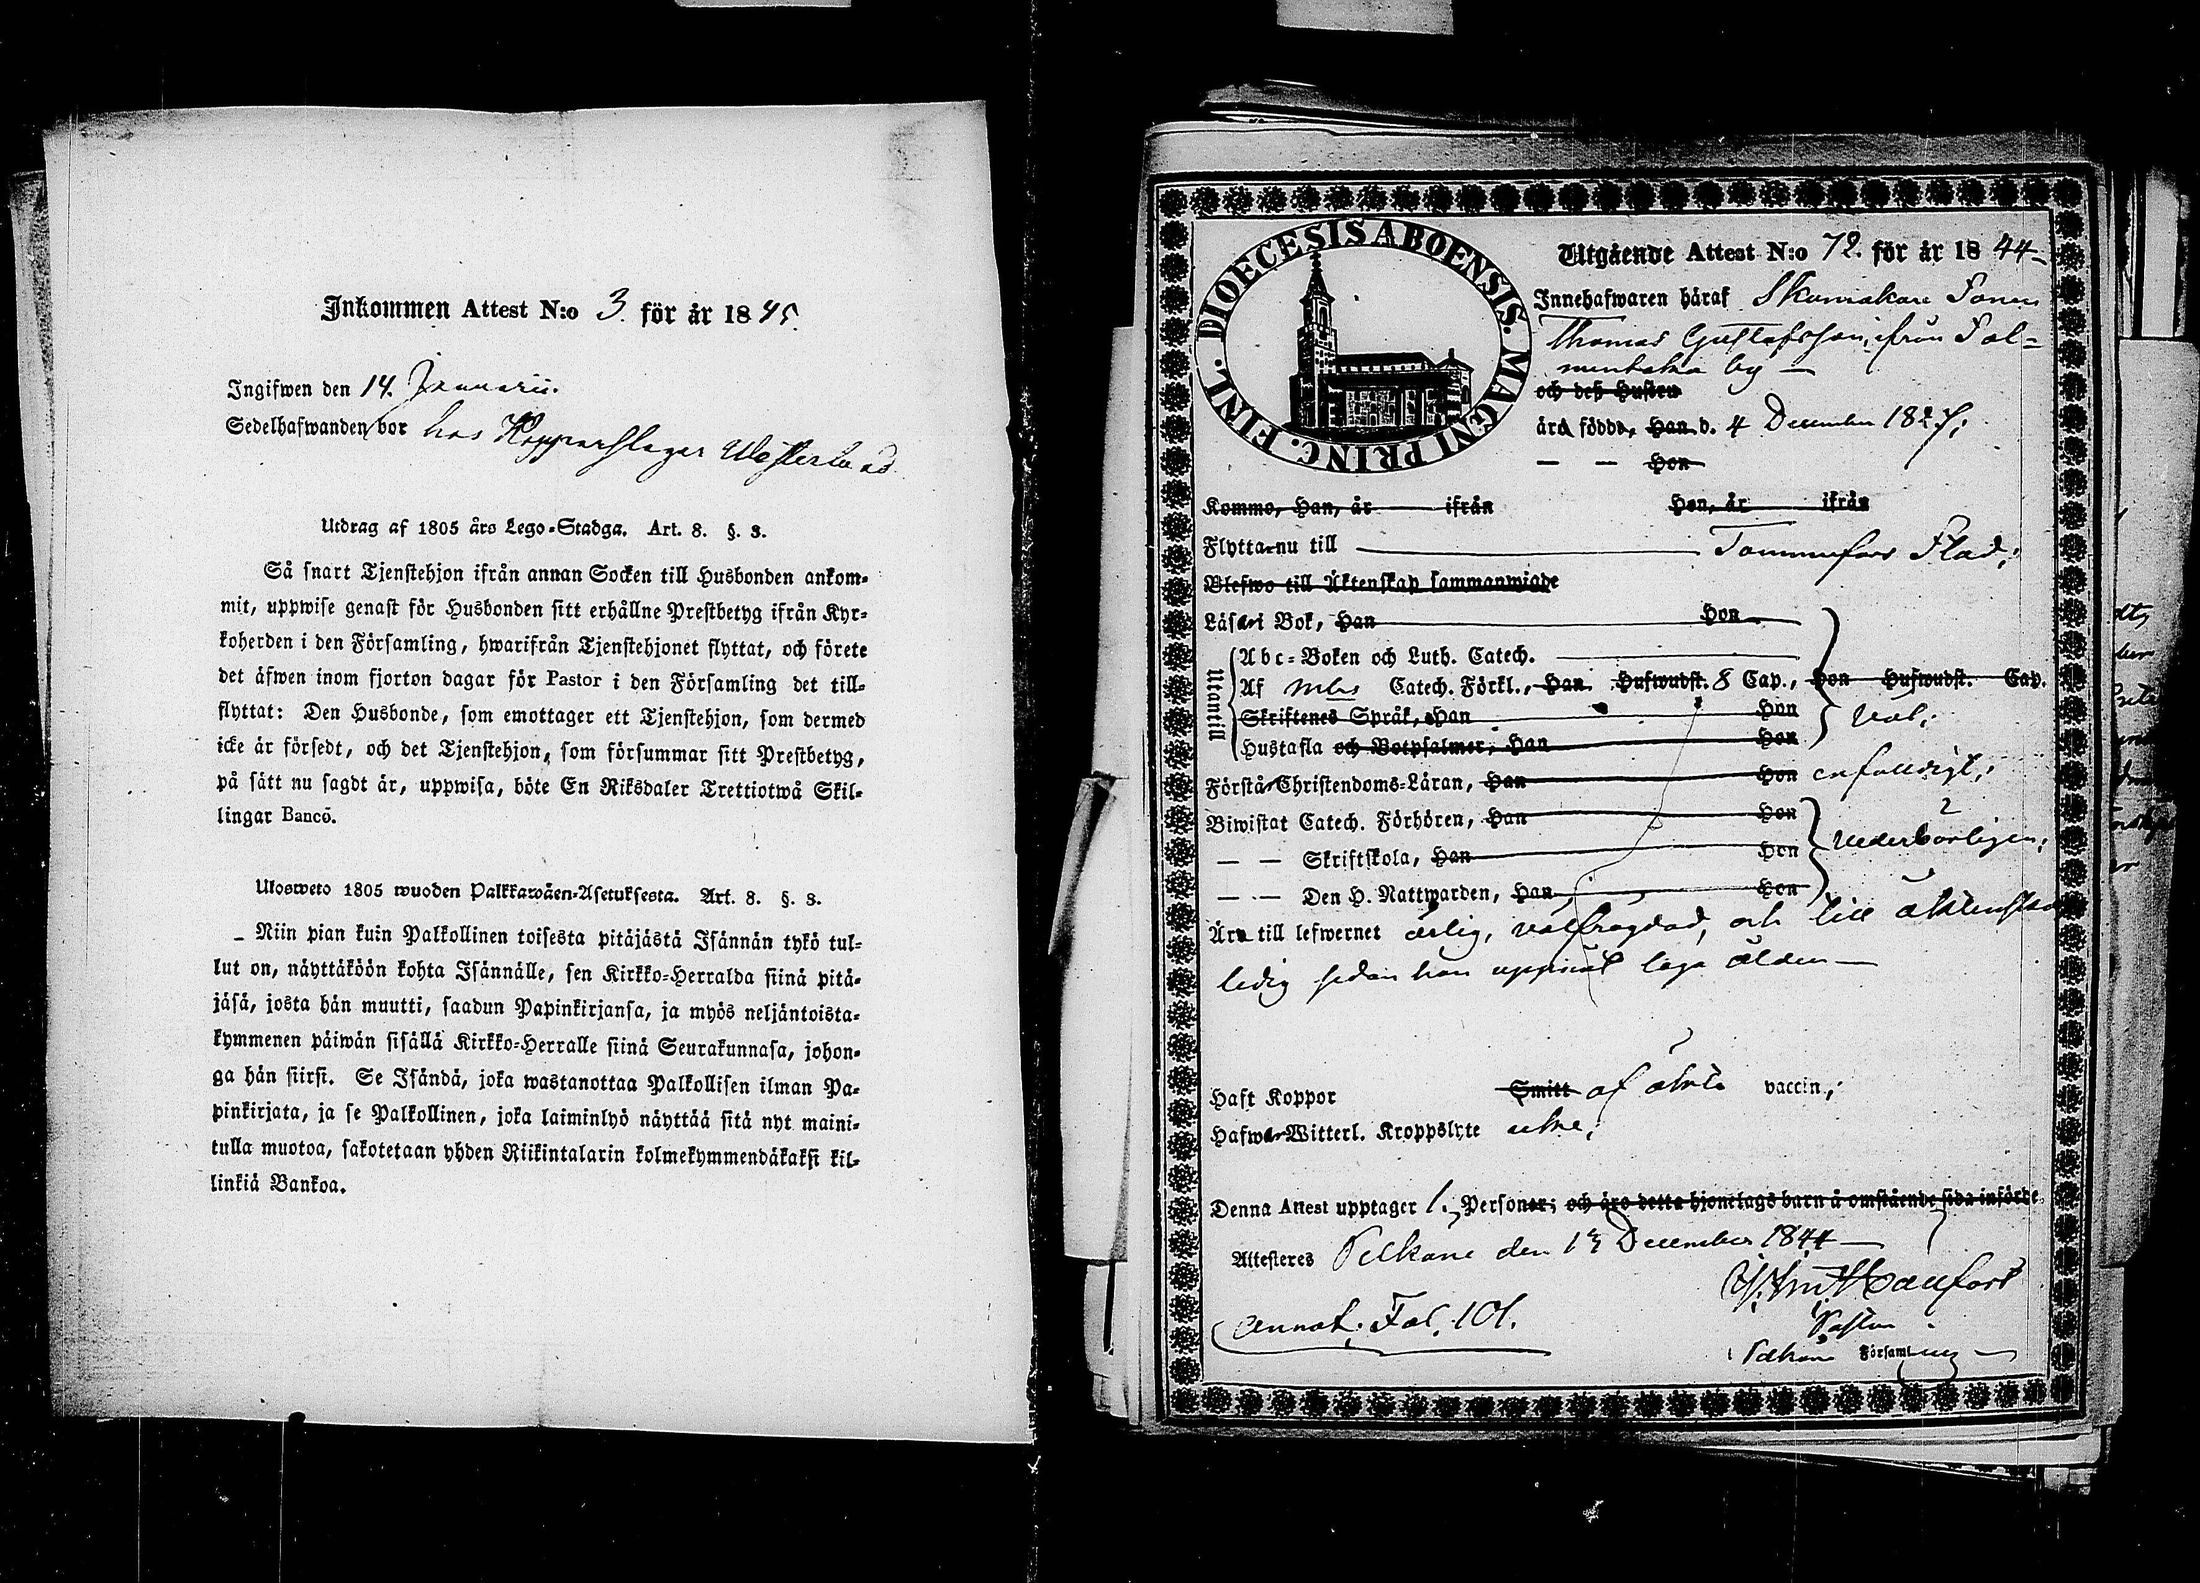 Inkommen Attest N:o 3. för år 1845.
Ingifwen den 14. Januarii.
Sedelhafwanden bor hos Kopparslagar Westerlund
Utdrag af 1805 års Lego-Stadga. Art. 8. §. 3.
Så snart Tjenstehjon ifrån annan Socken till Husbonden ankom-
mit, uppwise genast för Husbonden sitt erhållne Prestbetyg ifrån Kyr-
koherden i den Församling, hwarifrån Tjenstehjonet flyttat, och förete
det äfwen inom fjorton dagar för Pastor i den Församling det till-
flyttat: Den Husbonde, som emottager ett Tjenstehjon, som dermed
icke är försedt, och det Tjenstehjon, som försummar sitt Prestbetyg,
på sätt nu sagdt är, uppwisa, böte En Riksdaler Trettiotwå Skil-
lingar Banco.
Ulosweto 1805 wuoden Palkkawäen-Asetuksesta. Art. 8. §. 3.
Niin pian kuin Palkollinen toisesta pitäjästä Isännän tykö tul-
lut on, näyttäköön kohta Isännälle, sen Kirkko-Herralda siinä pitä-
jäsä, josta hän muutti, saadun Papinkirjansa, ja myös neljäntoista-
kymmenen päiwän sisällä Kirkko-Herralle siinä Seurakunnasa, johon-
ga hän siirsi. Se Isändä, joka wastanottaa Palkollisen ilman Pa-
pinkirjata, ja se Palkollinen, joka laiminlyö näyttää sitä nyt maini-
tulla muotoa, sakotetaan yhden Riikintalarin kolmekymmendäkaksi kil-
linkiä Bankoa.
DIOECESIS ABOENSIS. MAGNI PRINC. FINL.
Utgående Attest N:o 72. för år 1844
Innehafwaren häraf Skomakare Sonen
Thomas Gustafsson, ifrån Sal-
mentaka by
och deß Hustru
ära födda, Han d. 4 December 1827;
Hon
Komma, Han, år ifrån Hon, år ifrån
Flytta nu till Tammerfors Stad;
Blefwo till Äktenskap sammanwigde
Läsa i Bok, Han Hon
Utantill
Abc-Boken och Luth. Catech.
Af Catech. Förkl., Han Hufwudst. 8 Cap., Hon Hufwudst. Cap.
Skriftenes Språk, Han Hon väl;
Hustafla och Botpsalmer, Han Hon
Förstå Christendoms-Läran, Han Hon enfaldigt;
Biwistat Catech. Förhören, Han Hon
Skriftskola, Han Hon vederbörligen;
Den H. Nattwarden, Han Hon
Ära till lefwernet ärlig, välfrägdad, och till äktenskap
ledig sedan han uppnåt laga ålder
Haft Koppor Smitt af äkta vaccin;
Hafwa Witterl. Kroppslyte icke;
Denna Attest upptager 1. Personer; och äro detta hjonelags barn å omstående sida införde
Attesteres Pelkäne den 13 December 1844
Pastor
Annot. Fol. 101.
Pelkäne Församling